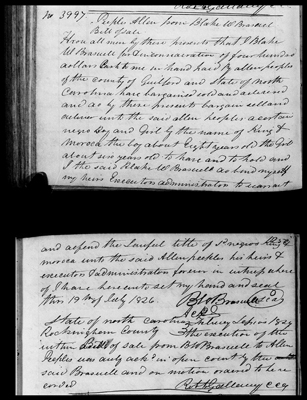 No 3997
Peoples Allen from Blake W Braswell
Bill of Sale
Know all men by these presents that I Blake
W Brasswell for & in consideration of four hundred
dollars Cash to me in hand paid By allen peoples
of the county of Guilford and State of north
Carolina have bargained sold and delivered
and do by these presents bargain sell and
deliver unto the said allen peoples a certain
negro Boy and Girl by the name of King &
Morcea the boy about Eight years old the Girl
about six years old to have and to hold and
I the said Blake W Brasswell do bind myself
my heirs Executors administrators to warrant
and defend the Lawful title of sd negros King &
morcea unto the said Allen peoples his heirs &
executors & administrators forever in witness whereof
I have hereunto set my hand and seal
this 19 of July 1826
B W Braswell
State of north carolina
Rockingham County The execution of the
within Bill of sale from B W Braswell to Allen
Peoples was duly ackd in open county by the
said Braswell and on motion ordered to be re
corded
Robt Gallaway C C C